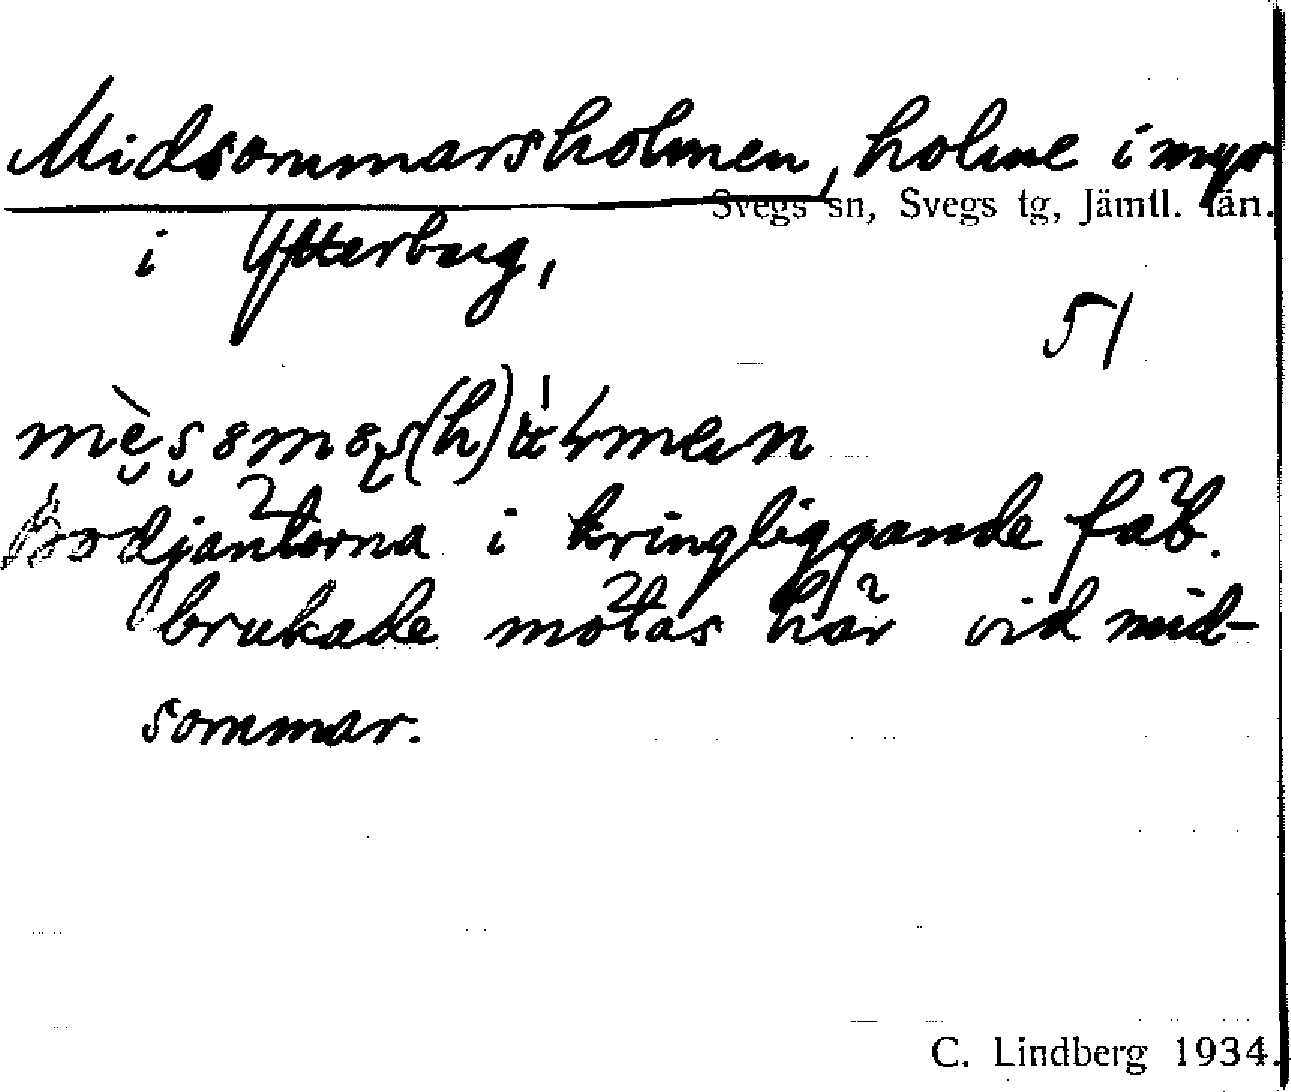 Midsommarsholmen, holme i myr
Svegs sn, Svegs tg, Jämtl. län.
i Ytterberg,
51
Bodjäntorna i kringliggande fäb.
brukade mötas här vid mid-
sommar.
C. Lindberg 1934.